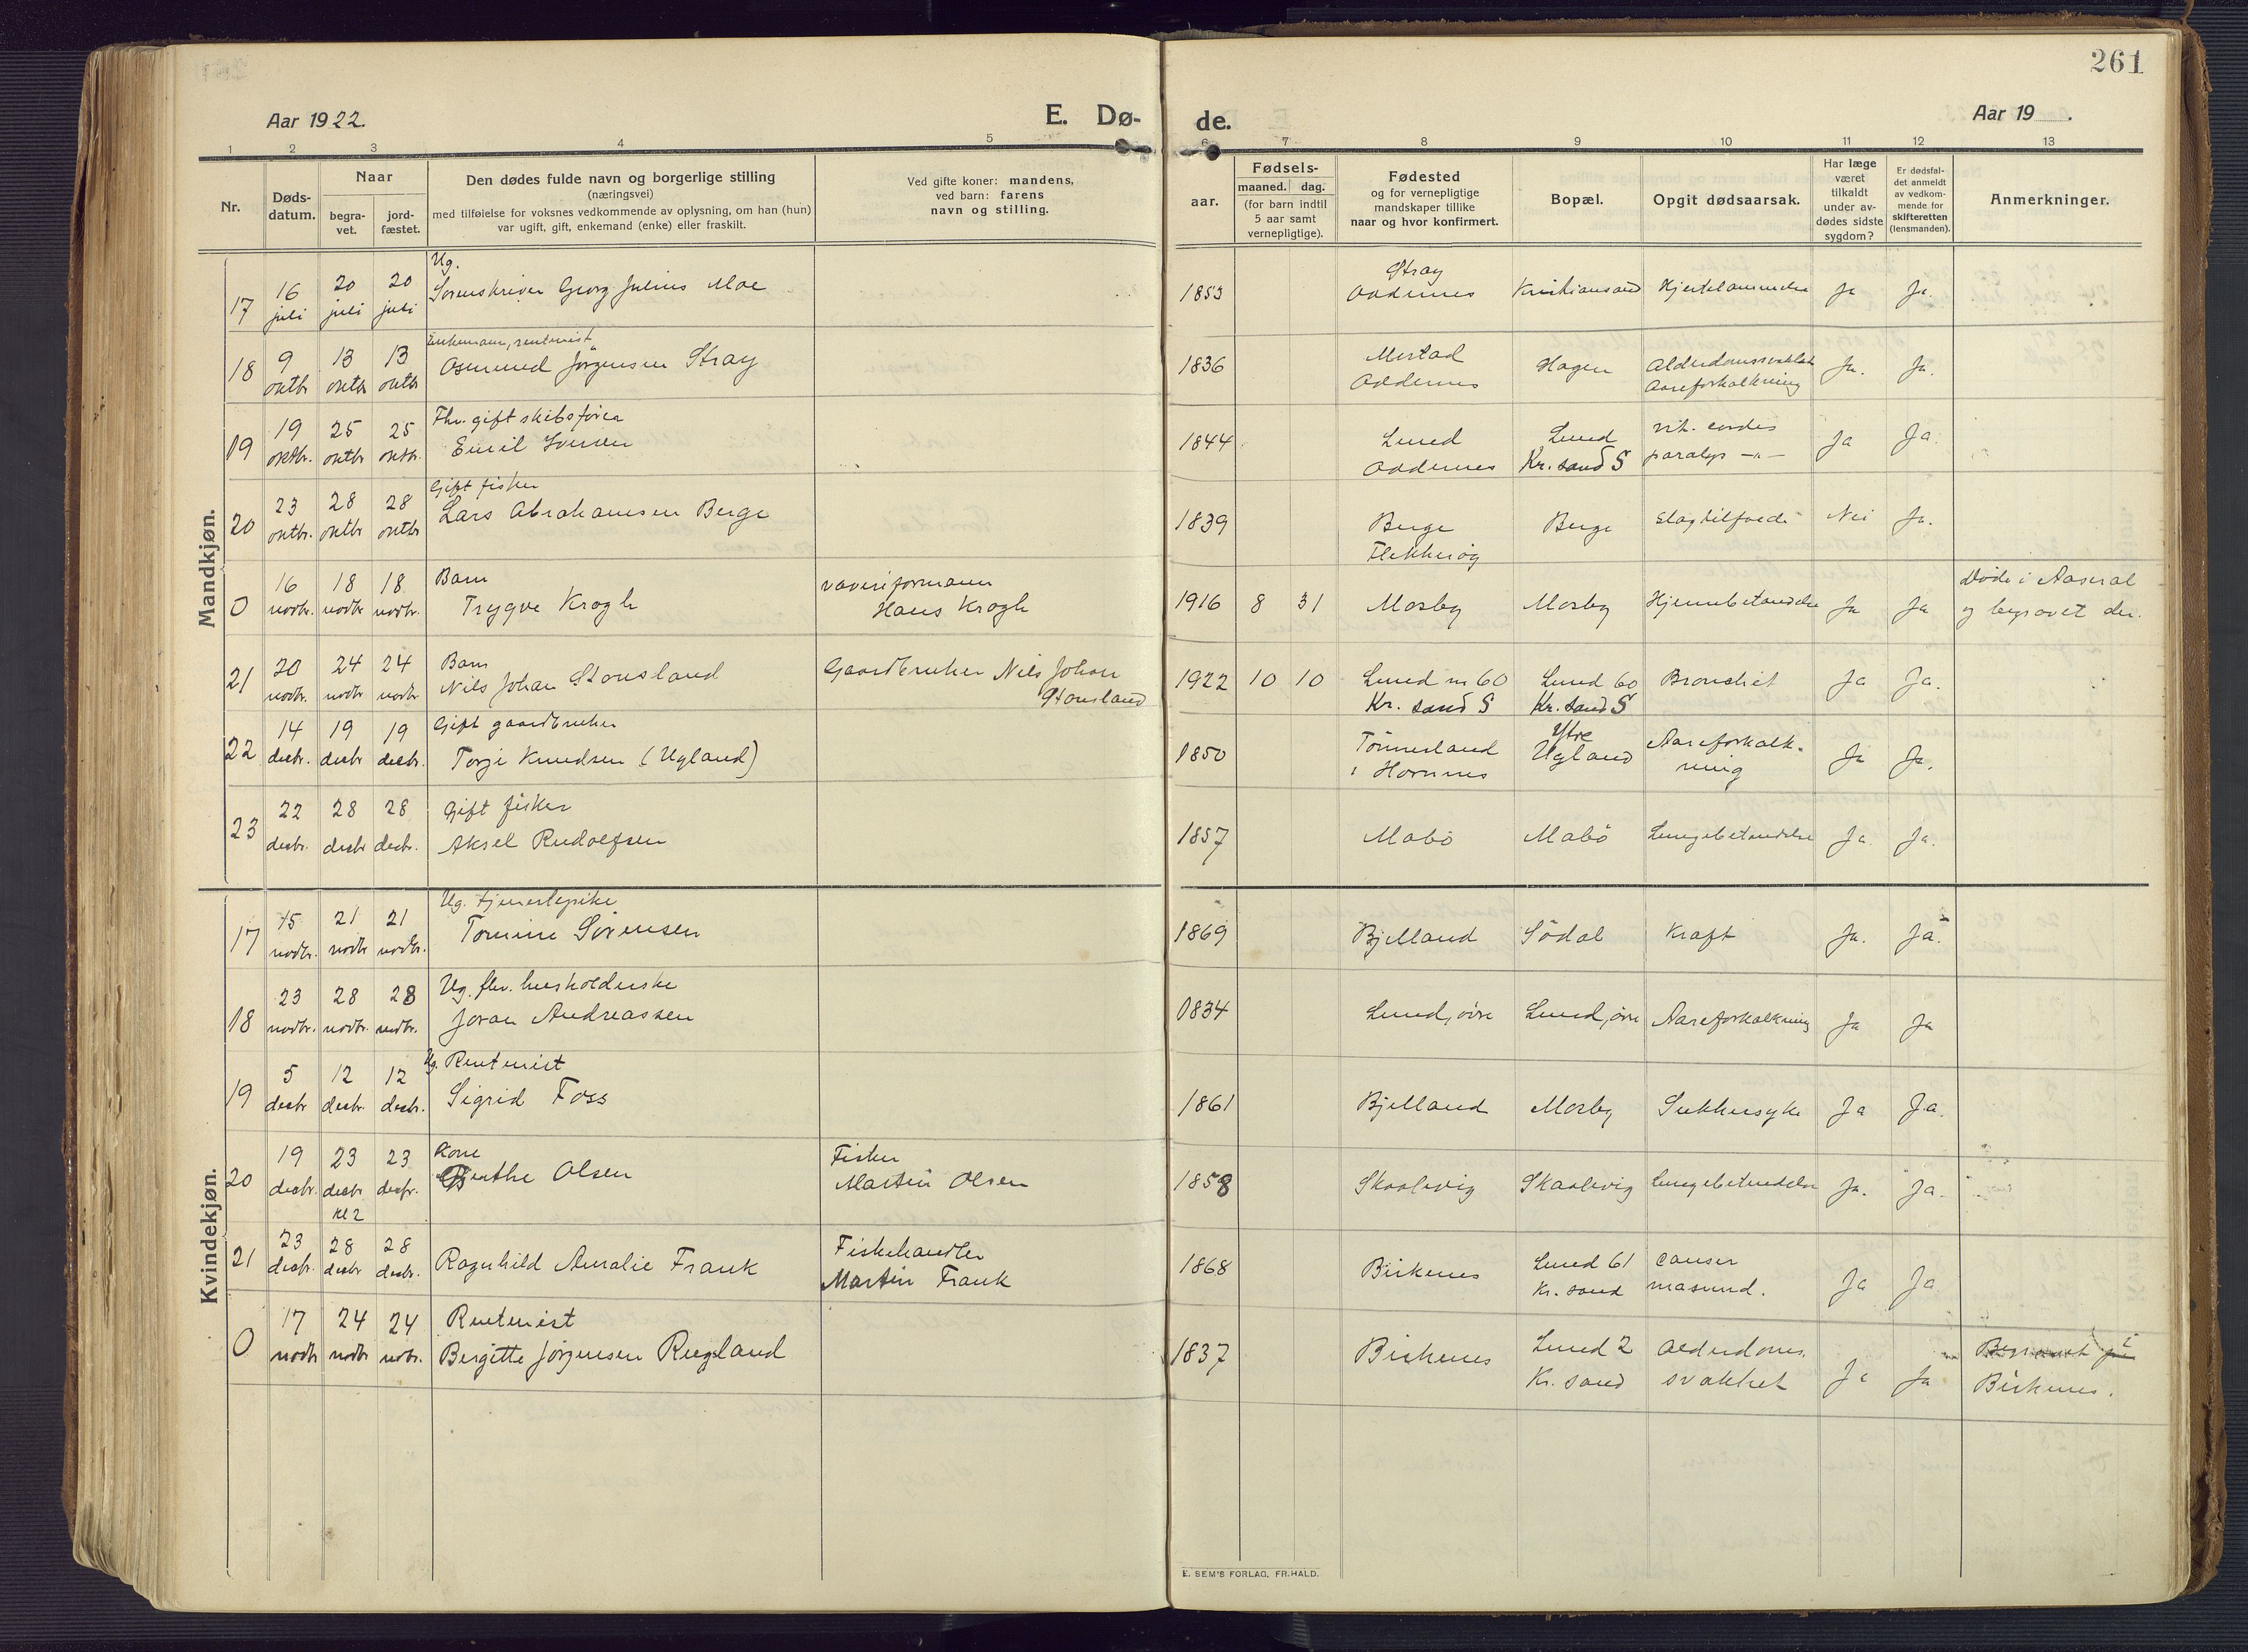 261
Aar 1922.
E. Dø-
de.
Aar 19 .
1 2 3 4 5 6 7 8 9 10 11 12 13
Nr.
Døds-
datum.
Naar
begra-
vet.
jord-
fæstet.
Den dødes fulde navn og borgerlige stilling
(næringsvei)
med tilføielse for voksnes vedkommende av oplysning, om han (hun)
var ugift, gift, enkemand (enke) eller fraskilt.
Ved gifte koner: mandens,
ved barn: farens
navn og stilling.
aar.
Fødsels-
maaned. dag.
(for barn indtil
5 aar samt
vernepligtige).
Fødested
og for vernepligtige
mandskaper tillike
naar og hvor konfirmert.
Bopæl.
Opgit dødsaarsak.
Har læge
været
tilkaldt
under av-
dødes sidste
sygdom?
Er dødsfal-
det anmeldt
av vedkom-
mende for
skifteretten
(lensmanden).
Anmerkninger.
Mandkjøn.
Ug. Stray
17 16 juli 20 juli 20 juli Sorenskriver Georg Julius Moe 1853 Oddernes Kristiansand Hjertelammelse Ja Ja.
Enkemann, rentenist
18 9 oktbr 13 oktbr 13 oktbr Osmund Jörgensen Stray 1836 Mestad Oddernes Hagen Alderdomssvakhet Aareforkalkning Ja. Ja.
Fhv. gift skibsfører
19 19 oktbr. 25 oktbr 25 oktbr. Emil 1844 Lund Oddernes Lund Kr. sand S vit. cordis paralys —„— Ja Ja.
Gift fisker
20 23 oktbr. 28 oktbr 28 oktbr Lars Abrahamsen Berge 1839 Berge Flekkerøy Berge Slagtilfælde Nei Ja.
Barn
0 16 novbr. 18 novbr 18 novbr. Trygve Krogh væveriformann Hans Krogh 1916 8 31 Mosby Mosby Hjernebetændelse Ja Ja Døde i Aaseral og begravet der.
Barn
21 20 novbr. 24 novbr 24 novbr Nils Johan Stonsland Gaardbruker Nils Johan Stonsland 1922 10 10 Lund nr 60 Kr. sand S Lund 60 Kr. sand S Bronchit Ja Ja.
Gift gaardbruker
22 14 desbr. 19 desbr 19 desbr. Torje Knudsen (Ugland) 1850 Tönnesland i Hornnes Ytre Ugland Aareforkalk- ning Ja Ja.
Gift fisker
23 22 desbr. 28 desbr 28 desbr. Aksel Rudolfsen 1857 Mabö Mabö Lungebetændelse Ja. Ja.
Kvindekjøn.
Ug. tjenestepike
17 15 novbr. 21 novbr 21 novbr. Tomine Sörensen 1869 Bjelland Södal Kræft Ja. Ja.
Ug. fhv. husholderske
18 23 novbr. 28 novbr. 28 novbr. Joran Andreassen 1834 Lund, övre Lund, övre Aareforkalkning Ja Ja
Ug. Rentenist
19 5 desbr 12 desbr. 12 desbr. Sigrid Foss 1861 Bjelland Mosby Sukkersyke Ja Ja.
Kone
20 19 desbr. 23 desbr kl 2 23 desbr. Berthe Olsen Fisker Martin Olsen 1858 Skaalevig Skaalevig Lungebetændelse Ja. Ja.
21 23 desbr. 28 desbr 28 desbr. Ragnhild Amalie Frank Fiskehandler Martin Frank 1868 Birkenes Lund 61 Kr. sand cancer mammæ. Ja Ja
Rentenist
0 17 novbr 24 novbr 24 novbr. Bergitte Jörgensen Rugland 1837 Birkenes Lund 2 Kr. sand Alderdoms- svakhet Ja Ja Begravet paa i Birkenes.
E. SEM'S FORLAG, FR.HALD.